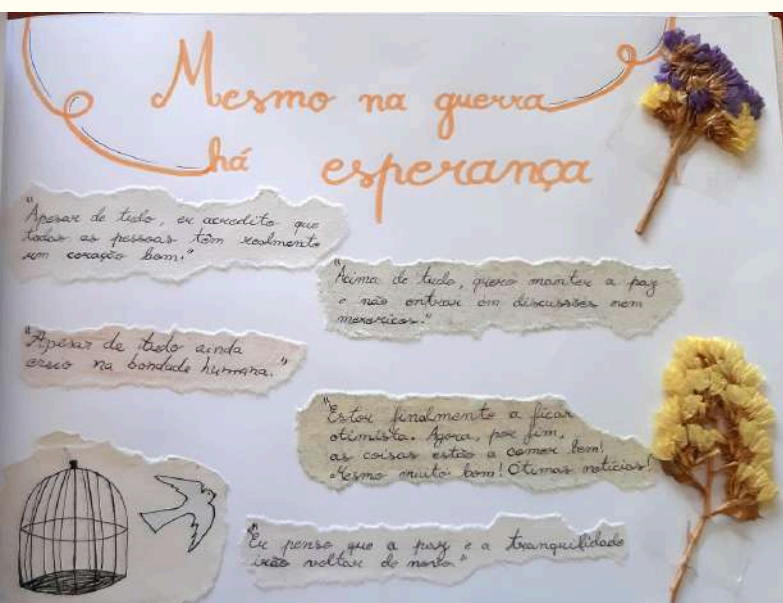 Mesmo na guerra
há esperança
"Apesar de tudo, eu acredito que
todas as pessoas têm realmente
um coração bom."
"Acima de tudo, quero manter a paz
e não entrar em discussões nem
mexericos."
"Apesar de tudo ainda
creio na bondade humana."
"Estou finalmente a ficar
otimista. Agora, por fim,
as coisas estão a correr bem!
Mesmo muito bem! Ótimas notícias!
"Eu penso que a paz e a tranquilidade
irão voltar de novo."